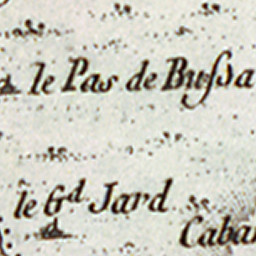 le Pas de Buſsa
le Gd Jard
Caba